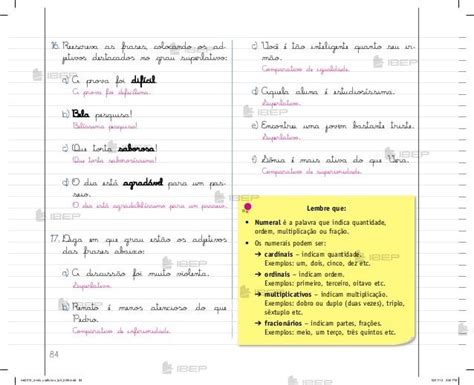 16. Reescreva as frases, colocando os ad-
jetivos destacados no grau superlativo:
a) A prova foi difícil.
A prova foi dificílima.
b) Bela pesquisa!
Belíssima pesquisa!
c) Que torta saborosa!
Que torta saborosíssima!
d) O dia está agradável para um pas-
seio.
O dia está agradabilíssimo para um passeio.
17. Diga em que grau estão os adjetivos
das frases abaixo:
a) A discussão foi muito violenta.
Superlativo.
b) Renato é menos atencioso do que
Pedro.
Comparativo de inferioridade.
84
c) Você é tão inteligente quanto seu ir-
mão.
Comparativo de igualdade.
d) Aquela aluna é estudiosíssima.
Superlativo.
e) Encontrei uma jovem bastante triste.
Superlativo.
f) Sônia é mais ativa do que Vera.
Comparativo de superioridade.
Lembre que:
• Numeral é a palavra que indica quantidade,
ordem, multiplicação ou fração.
• Os numerais podem ser:
➔ cardinais – indicam quantidade.
Exemplos: um, dois, cinco, dez etc.
➔ ordinais – indicam ordem.
Exemplos: primeiro, terceiro, oitavo etc.
➔ multiplicativos – indicam multiplicação.
Exemplos: dobro ou duplo (duas vezes), triplo,
sêxtuplo etc.
➔ fracionários – indicam partes, frações.
Exemplos: meio, um terço, três quintos etc.
IBEP